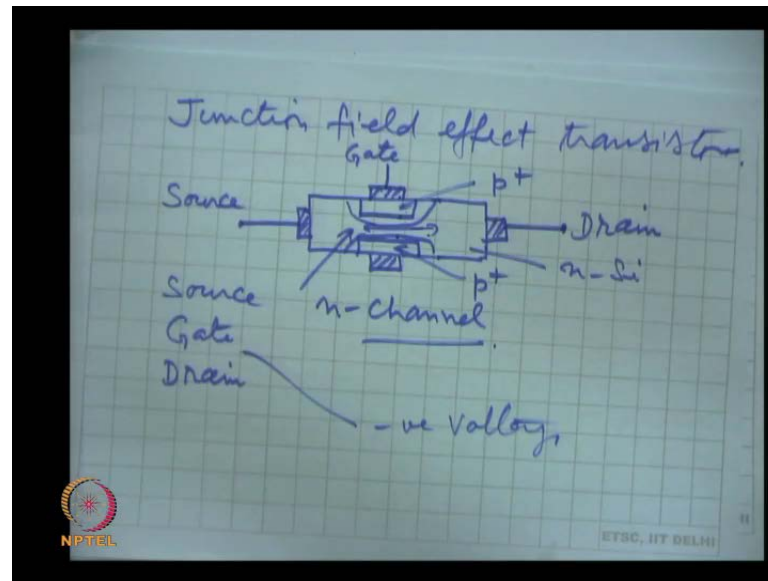 Junction field effect transistor.
Gate
p+
Source
Drain
n-Si
p+
n-channel
Source
Gate
Drain
-ve
NPTEL
ETSC, IIT DELHI